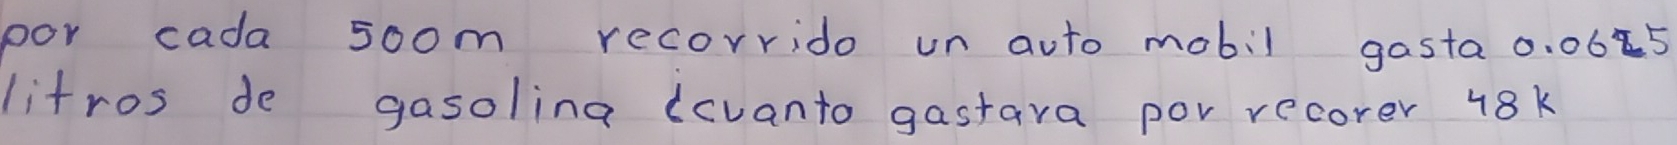 por cada 500m recorrido un auto mobil gasta 0.0625
litros de gasolina ¿cuanto gastara por recorer 48k